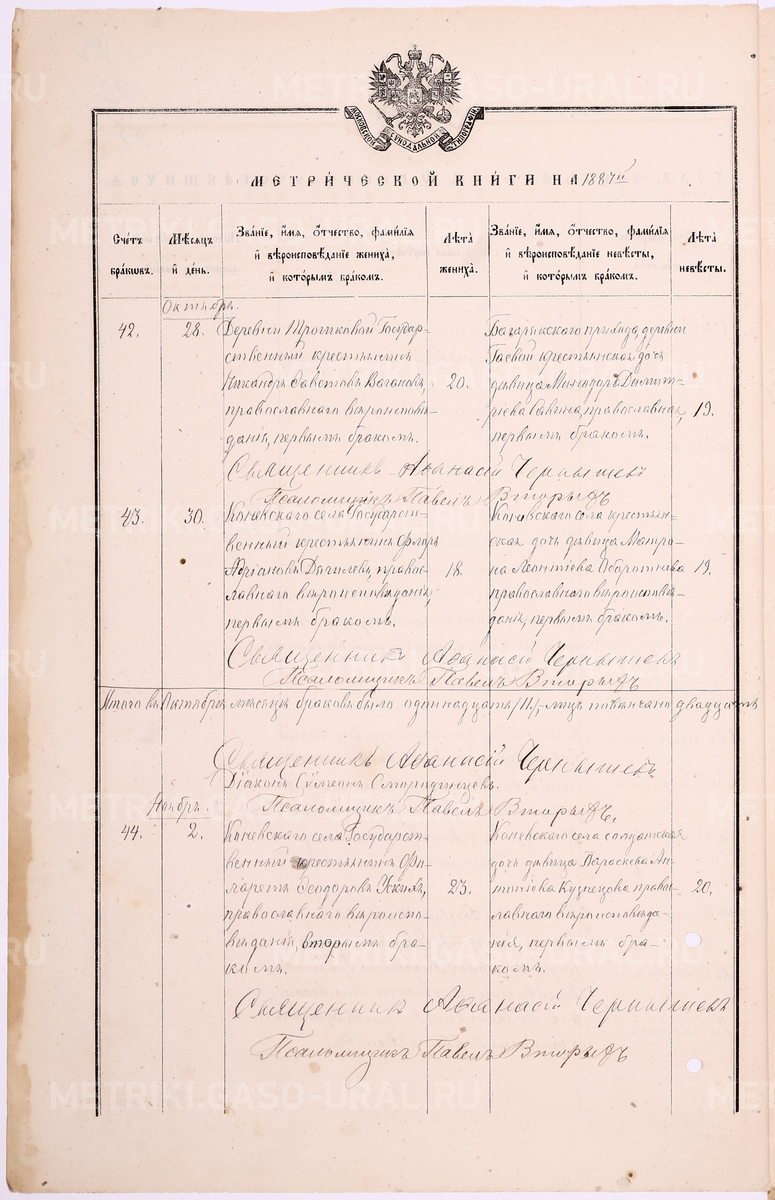 МОСКОВСКОЙ СѴНОДАЛЬНОЙ ТИПОГРАФІИ
МЕТРИЧЕСКОЙ КНИГИ НА 1887 г.
Счетъ браковъ.
Мѣсяцъ и день.
Званіе, имя, отчество, фамилія и вѣроисповѣданіе жениха, и которымъ бракомъ.
Лѣта жениха.
Званіе, имя, отчество, фамилія и вѣроисповѣданіе невѣсты, и которымъ бракомъ.
Лѣта невѣсты.
Октябрь.
42. 28.
Деревни Государ-
ственный крестьянинъ
Никандръ Савватовъ Ваганов,
православнаго вѣроисповѣ-
данія, первымъ бракомъ.
20.
Багарякского прихода, деревни
Гаевой крестьянская дочь
дѣвица Минодора Димит-
ріева Савина, православная,
первымъ бракомъ.
19.
Священникъ Аѳанасій Чернышевъ
Псаломщикъ Павелъ Вторыхъ
43. 30.
Коневскаго села Государст-
венный крестьянинъ Флоръ
Адріановъ Дягилевъ, правос-
лавнаго вѣроисповѣданія,
первымъ бракомъ.
18.
Коневскаго села крестьян-
ская дочь дѣвица Матро-
на Леонтіева Обаротнева
православнаго вѣроисповѣ-
данія, первымъ бракомъ.
19.
Священникъ Аѳанасій Чернышевъ
Псаломщикъ Павелъ Вторыхъ
Итого въ Октябрѣ мѣсяцѣ браковъ было одиннадцать /11/, лицъ повѣнчано двадцать
Священникъ Аѳанасій Чернышевъ
Діаконъ Сѵмеонъ Смородинцевъ.
Псаломщикъ Павелъ Вторыхъ.
Ноябрь.
44. 2.
Коневскаго села Государст-
венный крестьянинъ Фи-
ларетъ Ѳеодоровъ Ускихъ,
православнаго вѣроиспо-
вѣданія, вторымъ бра-
комъ.
23.
Коневскаго села солдатская
дочь дѣвица Параскева Ан-
типіева Кузнецова правос-
лавнаго вѣроисповѣда-
нія, первымъ бра-
комъ.
20.
Священникъ Аѳанасій Чернышевъ
Псаломщикъ Павелъ Вторыхъ
METRIKI.GASO-URAL.RU